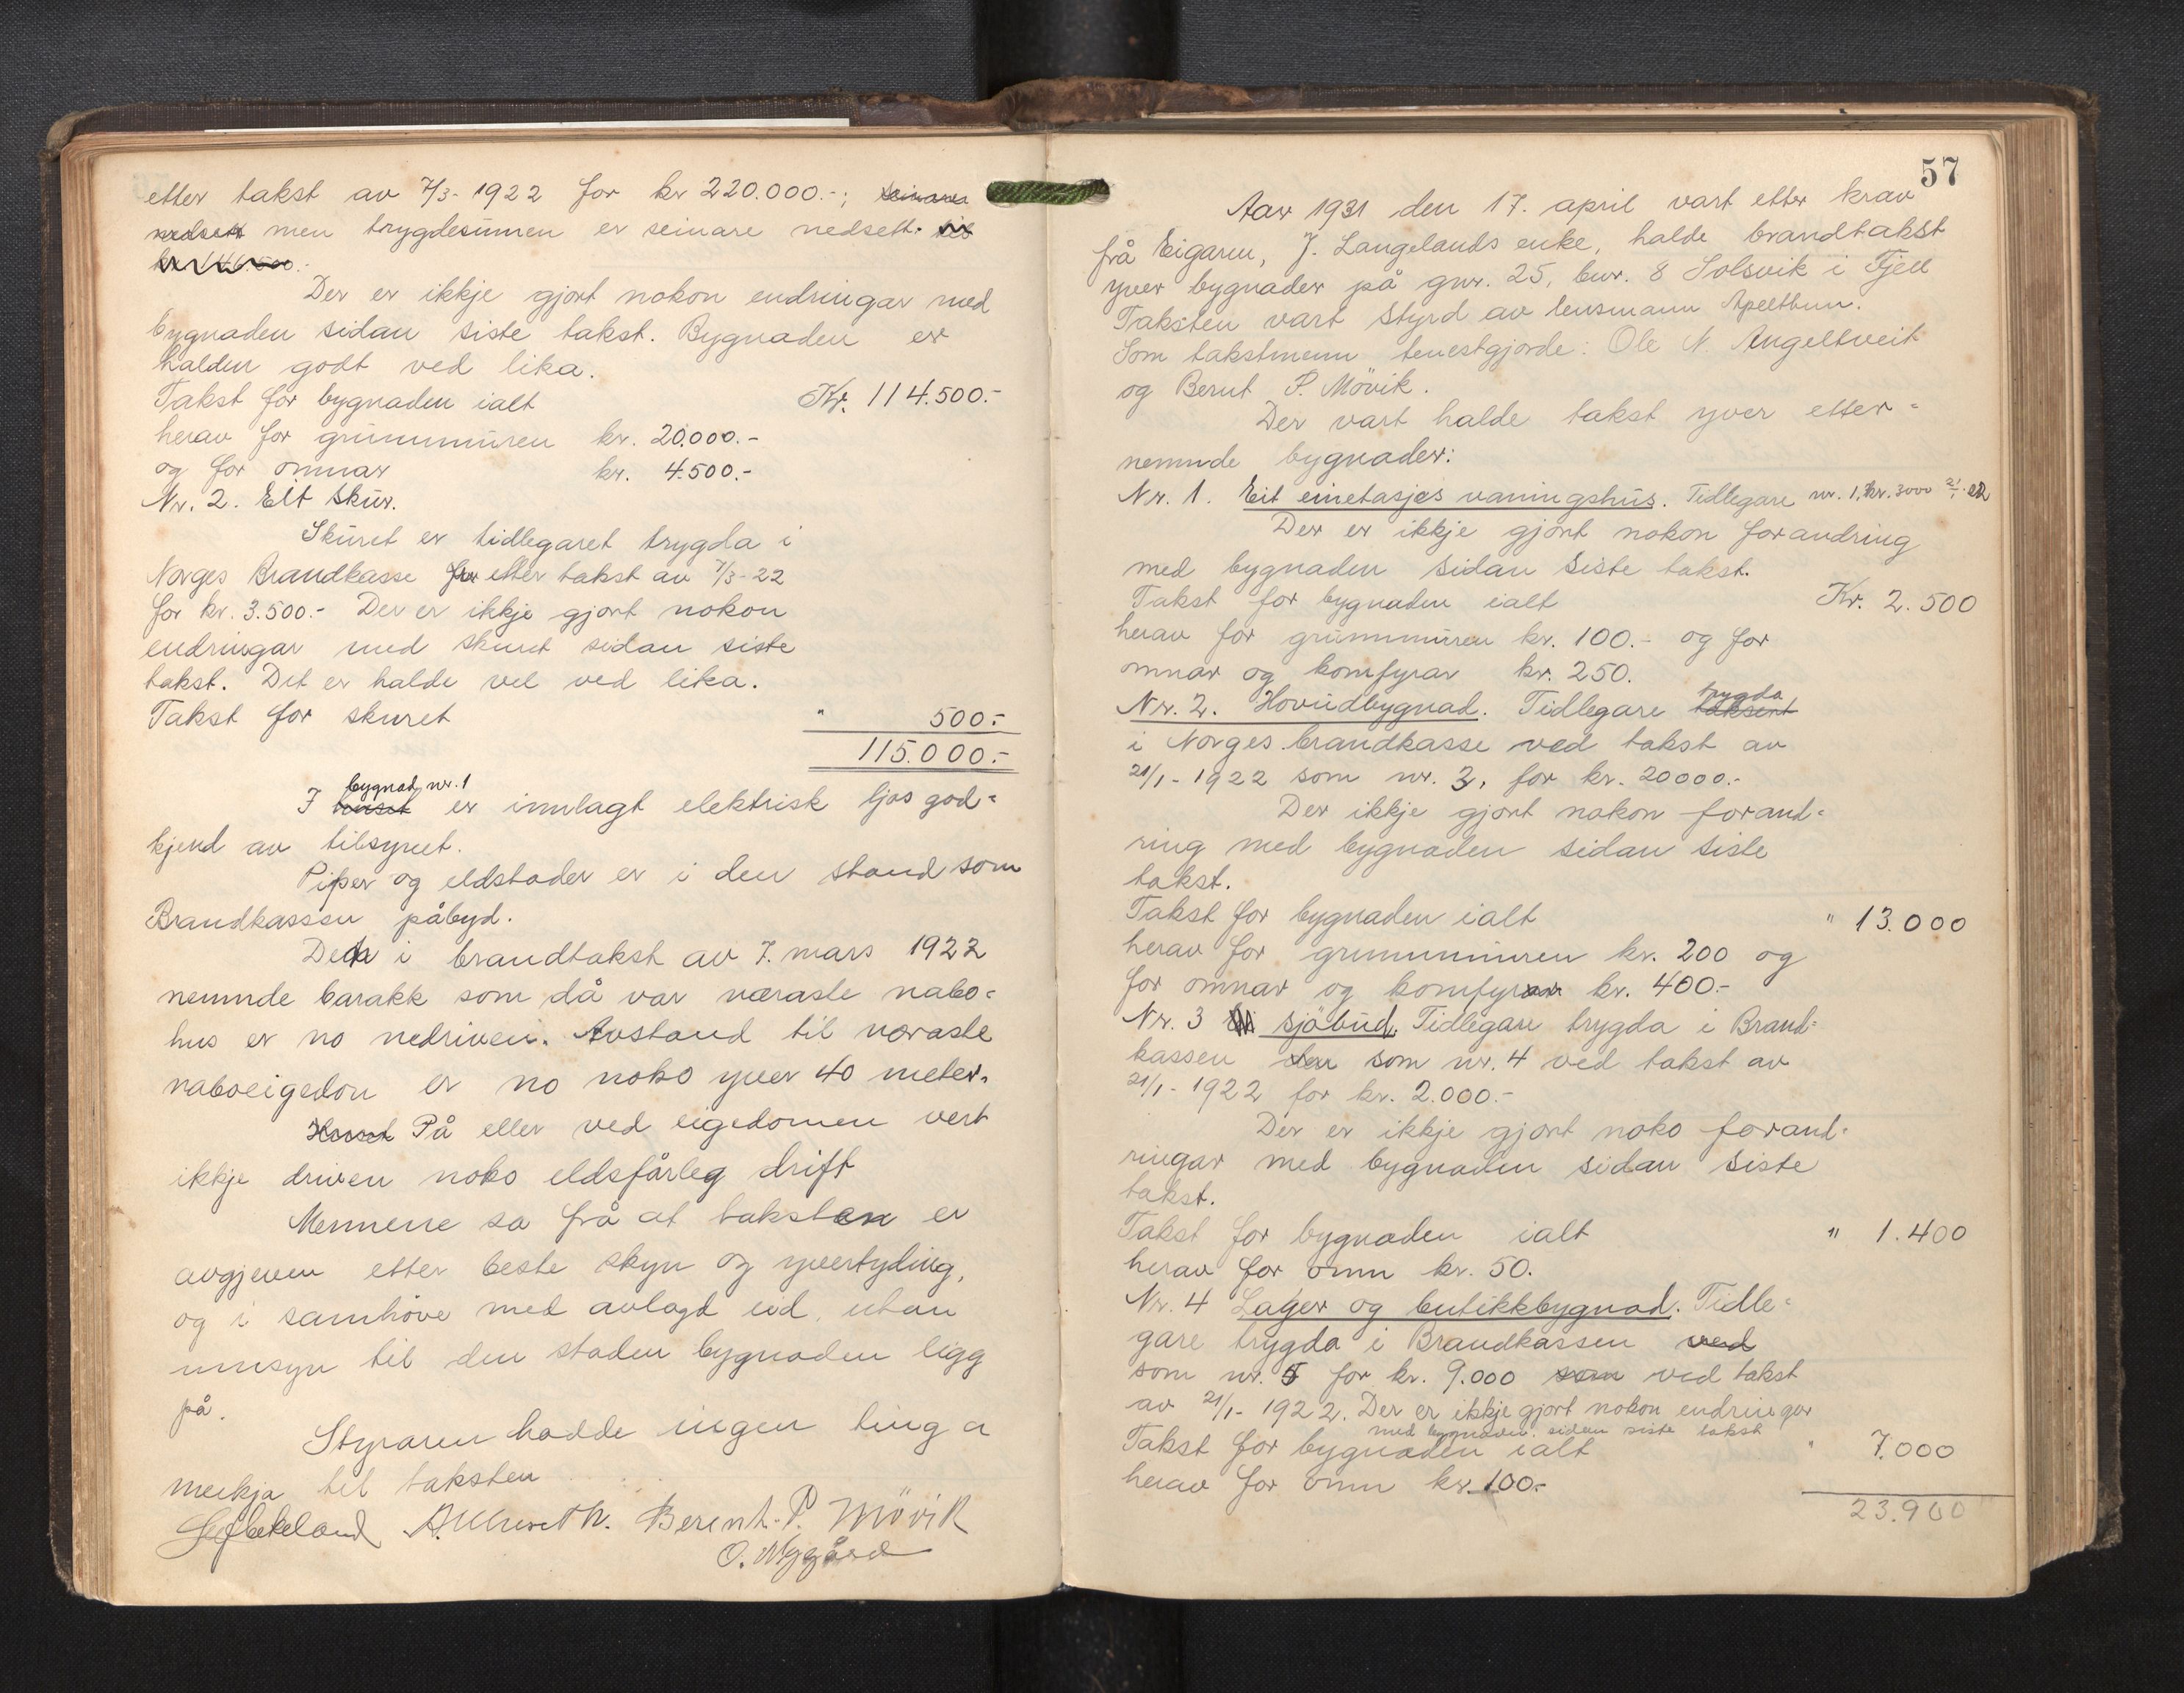 etter takst av 7/3-1922 for kr 220.000.-; seinare
nedsett men trygdesumen er seinare nedsett. til
kr.
Der er ikkje gjort nokon endringar med
bygnaden sidan siste takst. Bygnaden er
halden godt ved lika.
Takst for bygnaden ialt Kr. 114.500.-
herav for grunnmuren kr. 20.000.-
og for omnar kr. 4.500.-
Nr. 2. Eit skur.
Skuret er tidlegaret trygda i
Norges Brandkasse for etter takst av 7/3-22
for kr. 3.500.- Der er ikkje gjort nokon
endringar med skuret sidan siste
takst. Det er halde vel ved lika.
Takst for skuret " 500.-
115.000.-
bygnad nr. 1
I huset er innlagt elektrisk ljos god-
kjend av tilsynet.
Piper og eldstader er i den stand som
Brandkassen påbyd.
Den i brandtakst av 7. mars 1922
nemnde barakk som då var næraste nabo-
hus er no nedriven. Avstand til næraste
naboeigedon er no noko yver 40 meter.
Huset På eller ved eigedomen vert
ikkje driven noko eldsfårleg drift
Mennene sa frå at taksten er
avgjeven etter beste skyn og yvertyding,
og i samhöve med avlagd eid, utan
umsyn til den staden bygnaden ligg
på.
Styraren hadde ingen ting a
merkja til taksten
Berent. P. Mövik
O. Nygård
57
Aar 1931 den 17. april vart etter krav
frå Eigaren, J. Langelands enke, halde brandtakst
yver bygnader på gnr. 25, bnr. 8 Solsvik i Fjell
Taksten vart styrd av lensmann Apeltun.
Som takstmenn tenestgjorde: Ole N. Angeltveit
og Bernt P. Mövik.
Der vart halde takst yver etter-
nemnde bygnader:
Nr. 1. Eit einetasjes vaningshus. Tidlegare nr. 1, kr. 3000 21/1-22
Der er ikkje gjort nokon forandring
med bygnaden sidan siste takst.
Takst for bygnaden ialt Kr. 2.500
herav for grunnmuren kr. 100.- og for
omnar og komfyrar kr. 250.
trygda
Nr. 2. Hovudbygnad. Tidlegare taksert
i Norges brandkasse ved takst av
21/1-1922 som nr. 3, for kr. 20000.-
Der ikkje gjort nokon forand-
ring med bygnaden sidan siste
takst.
Takst for bygnaden ialt " 13.000
herav for grunnmuren kr. 200 og
for omnar og komfyrar kr. 400.-
Nr. 3 Ei sjöbud. Tidlegare trygda i Brand-
kassen den som nr. 4 ved takst av
21/1-1922 for kr. 2.000.-
Der er ikkje gjort noko forand-
ringar med bygnaden sidan siste
takst.
Takst for bygnaden ialt " 1.400
herav for omn kr. 50.
Nr. 4 Lager og butikkbygnad. Tidle-
gare trygda i Brandkassen ved
som nr. 5 for kr. 9.000 som ved takst
av 21/1-1922. Der er ikkje gjort nokon endringar
med bygnaden sidan siste takst
Takst for bygnaden ialt " 7.000
herav for omn kr. 100.-
23.900